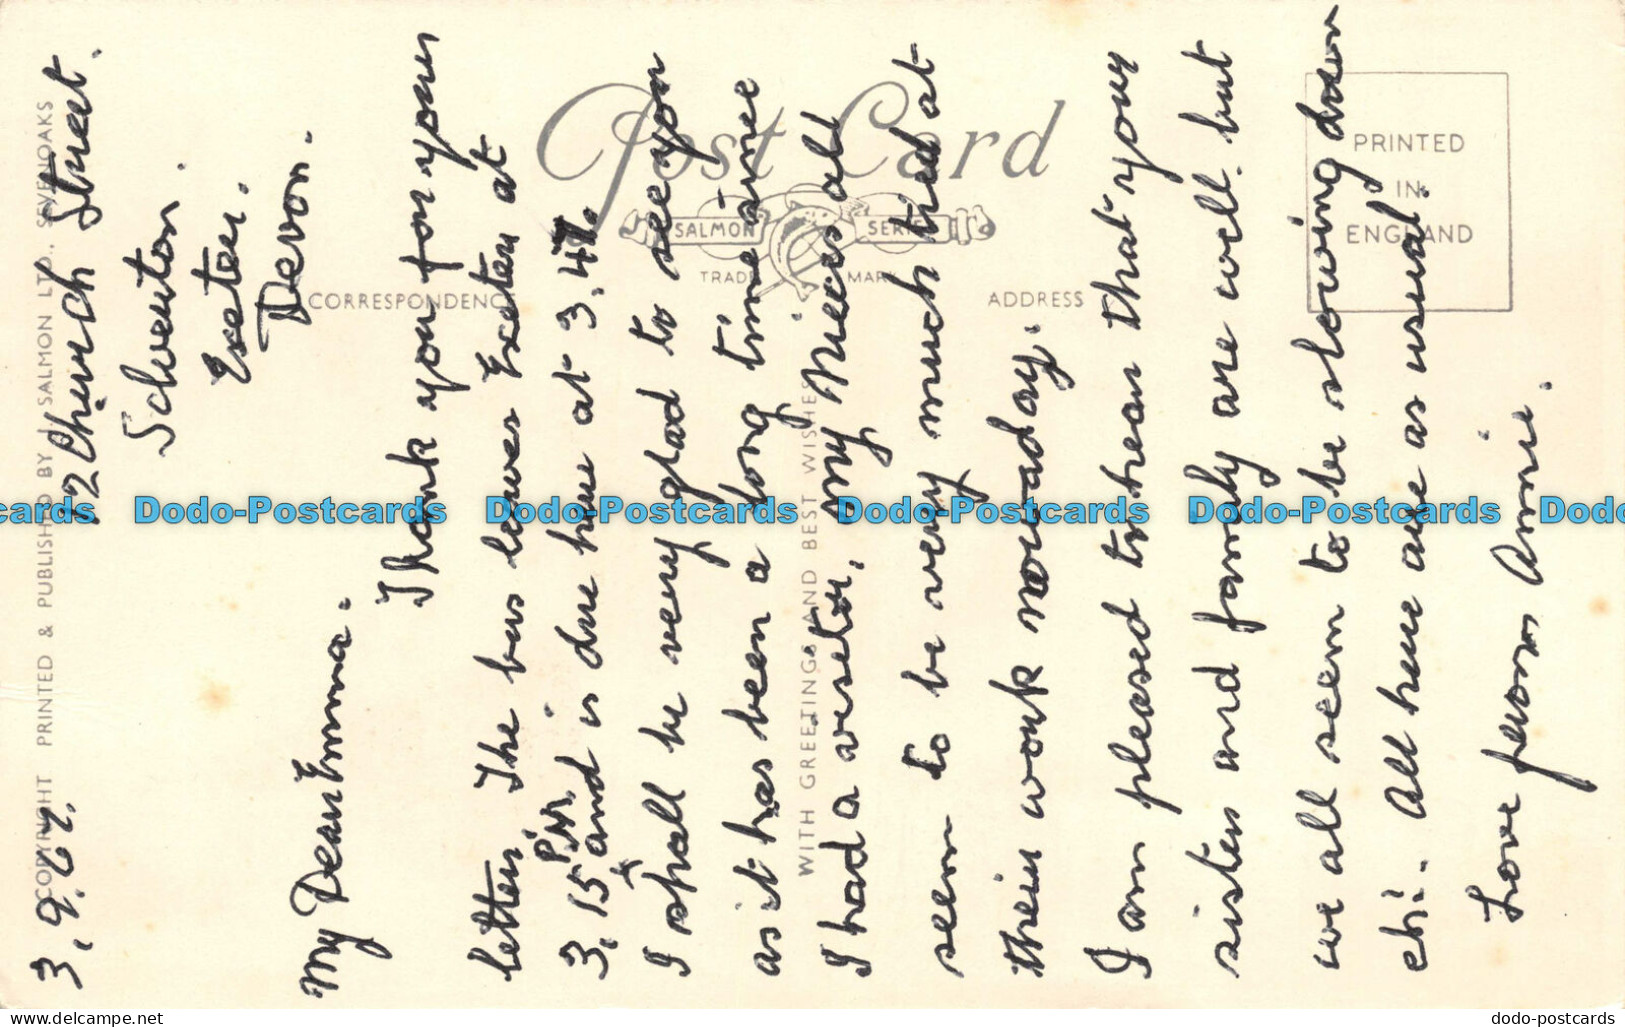 3.9.67.
72 Church Street.
Silverton.
Exeter.
Devon.
My Dear Emma.
Thank you for your
letter, The bus leaves Exeter at
3.15 P.M. and is due here at 3.47.
I shall be very glad to see you
as it has been a long time since
I had a visitor, my Nieces all
seem to be very much tied at
their work nowaday.
I am pleased to hear that your
sister and family are well. but
we all seem to be slowing down
eh!. All here are as usual.
Love from Annie.
Post Card
SALMON SERIES
TRADE MARK
CORRESPONDENCE
ADDRESS
PRINTED
IN
ENGLAND
WITH GREETINGS AND BEST WISHES
COPYRIGHT PRINTED & PUBLISHED BY J. SALMON LTD., SEVENOAKS
Dodo-Postcards Dodo-Postcards Dodo-Postcards Dodo-Postcards
delcampe.net
dodo-postcards